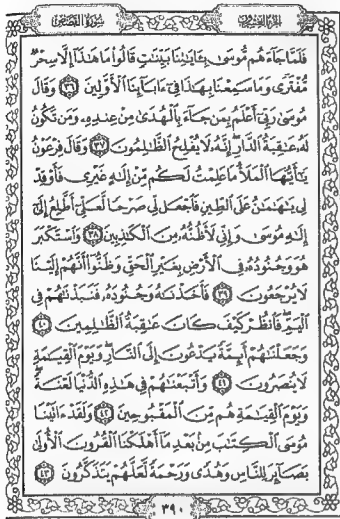 الجزء العشرون
سورة القصص
فَلَمَّا جَآءَهُم مُّوسَىٰ بِـَٔايَٰتِنَا بَيِّنَٰتٍ قَالُوا۟ مَا هَٰذَآ إِلَّا سِحْرٌ
مُّفْتَرًى وَمَا سَمِعْنَا بِهَٰذَا فِىٓ ءَابَآئِنَا ٱلْأَوَّلِينَ ٣٦ وَقَالَ
مُوسَىٰ رَبِّىٓ أَعْلَمُ بِمَن جَآءَ بِٱلْهُدَىٰ مِنْ عِندِهِۦ وَمَن تَكُونُ
لَهُۥ عَٰقِبَةُ ٱلدَّارِ إِنَّهُۥ لَا يُفْلِحُ ٱلظَّٰلِمُونَ ٣٧ وَقَالَ فِرْعَوْنُ
يَٰٓأَيُّهَا ٱلْمَلَأُ مَا عَلِمْتُ لَكُم مِّنْ إِلَٰهٍ غَيْرِى فَأَوْقِدْ
لِى يَٰهَٰمَٰنُ عَلَى ٱلطِّينِ فَٱجْعَل لِّى صَرْحًا لَّعَلِّىٓ أَطَّلِعُ إِلَىٰٓ
إِلَٰهِ مُوسَىٰ وَإِنِّى لَأَظُنُّهُۥ مِنَ ٱلْكَٰذِبِينَ ٣٨ وَٱسْتَكْبَرَ
هُوَ وَجُنُودُهُۥ فِى ٱلْأَرْضِ بِغَيْرِ ٱلْحَقِّ وَظَنُّوٓا۟ أَنَّهُمْ إِلَيْنَا
لَا يُرْجَعُونَ ٣٩ فَأَخَذْنَٰهُ وَجُنُودَهُۥ فَنَبَذْنَٰهُمْ فِى
ٱلْيَمِّ فَٱنظُرْ كَيْفَ كَانَ عَٰقِبَةُ ٱلظَّٰلِمِينَ ٤٠
وَجَعَلْنَٰهُمْ أَئِمَّةً يَدْعُونَ إِلَى ٱلنَّارِ وَيَوْمَ ٱلْقِيَٰمَةِ
لَا يُنصَرُونَ ٤١ وَأَتْبَعْنَٰهُمْ فِى هَٰذِهِ ٱلدُّنْيَا لَعْنَةً
وَيَوْمَ ٱلْقِيَٰمَةِ هُم مِّنَ ٱلْمَقْبُوحِينَ ٤٢ وَلَقَدْ ءَاتَيْنَا
مُوسَى ٱلْكِتَٰبَ مِنۢ بَعْدِ مَآ أَهْلَكْنَا ٱلْقُرُونَ ٱلْأُولَىٰ
بَصَآئِرَ لِلنَّاسِ وَهُدًى وَرَحْمَةً لَّعَلَّهُمْ يَتَذَكَّرُونَ ٤٣
٣٩٠